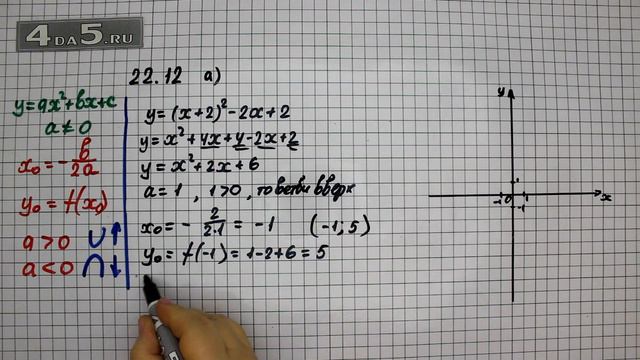 4DA5.RU
22.12 а)
y=ax²+bx+c
a≠0
x₀=-b/2a
y₀=f(x₀)
a>0
a<0
y=(x+2)²-2x+2
y=x²+4x+4-2x+2
y=x²+2x+6
a=1, 1>0, то ветви вверх
x₀=-2/2·1=-1 (-1;5)
y₀=f(-1)=1-2+6=5
y
1
-1 0 1 x
-1